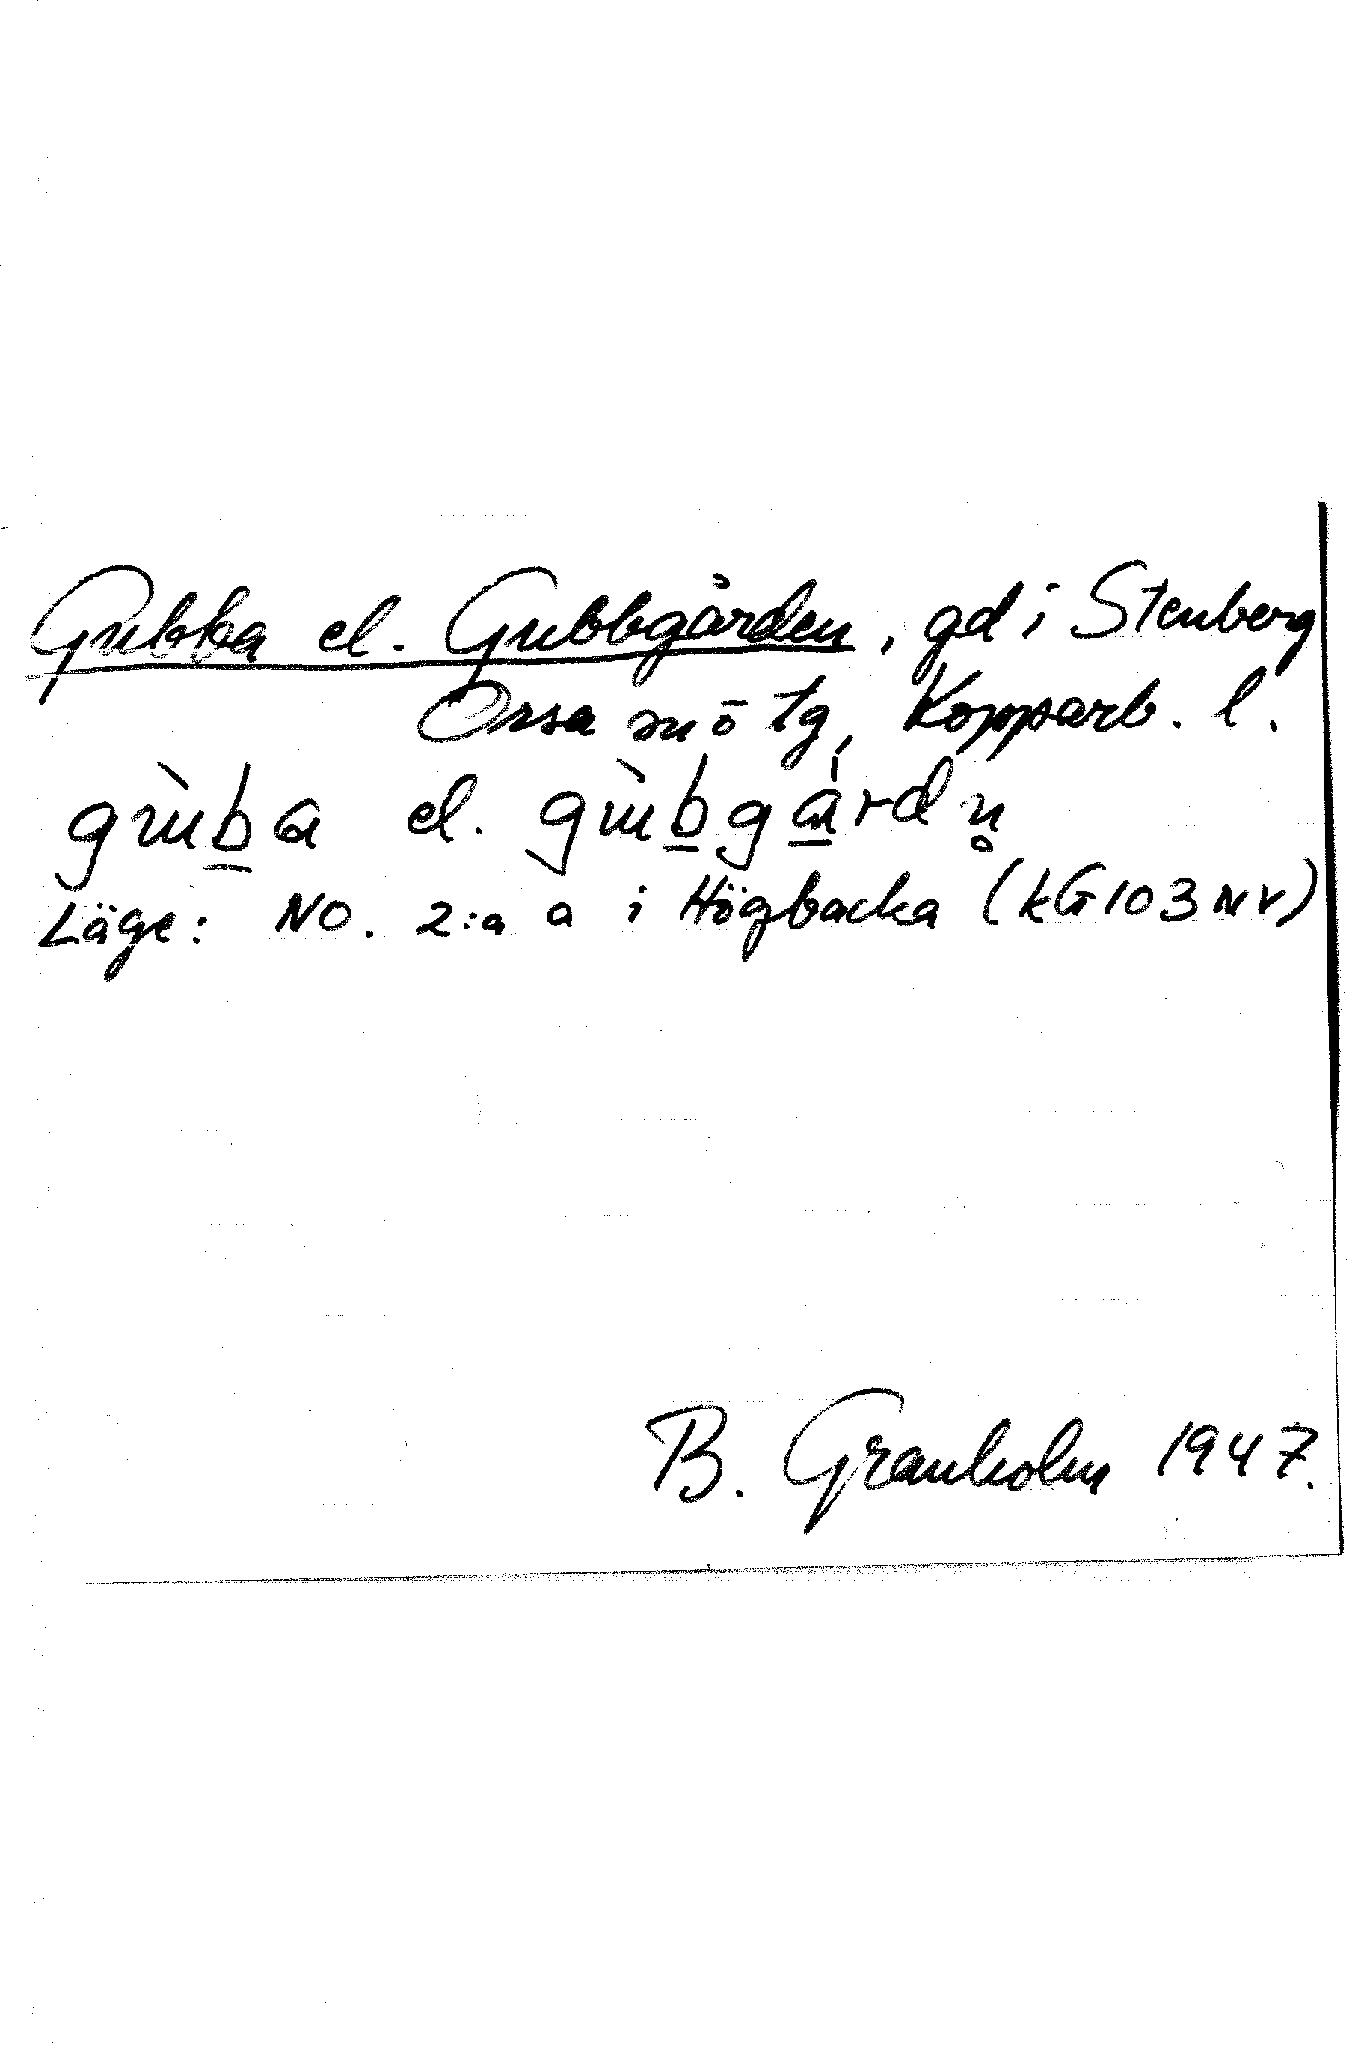 Gubba el. Gubbgården, gd i Stenberg
Orsa sn ö tg, Kopparb. l.
gùb̲a el. gùb̲ga̲rdn̥
Läge: NO. 2:a a i Högbacka (kG 103 NV)
B. Granholm 1947.